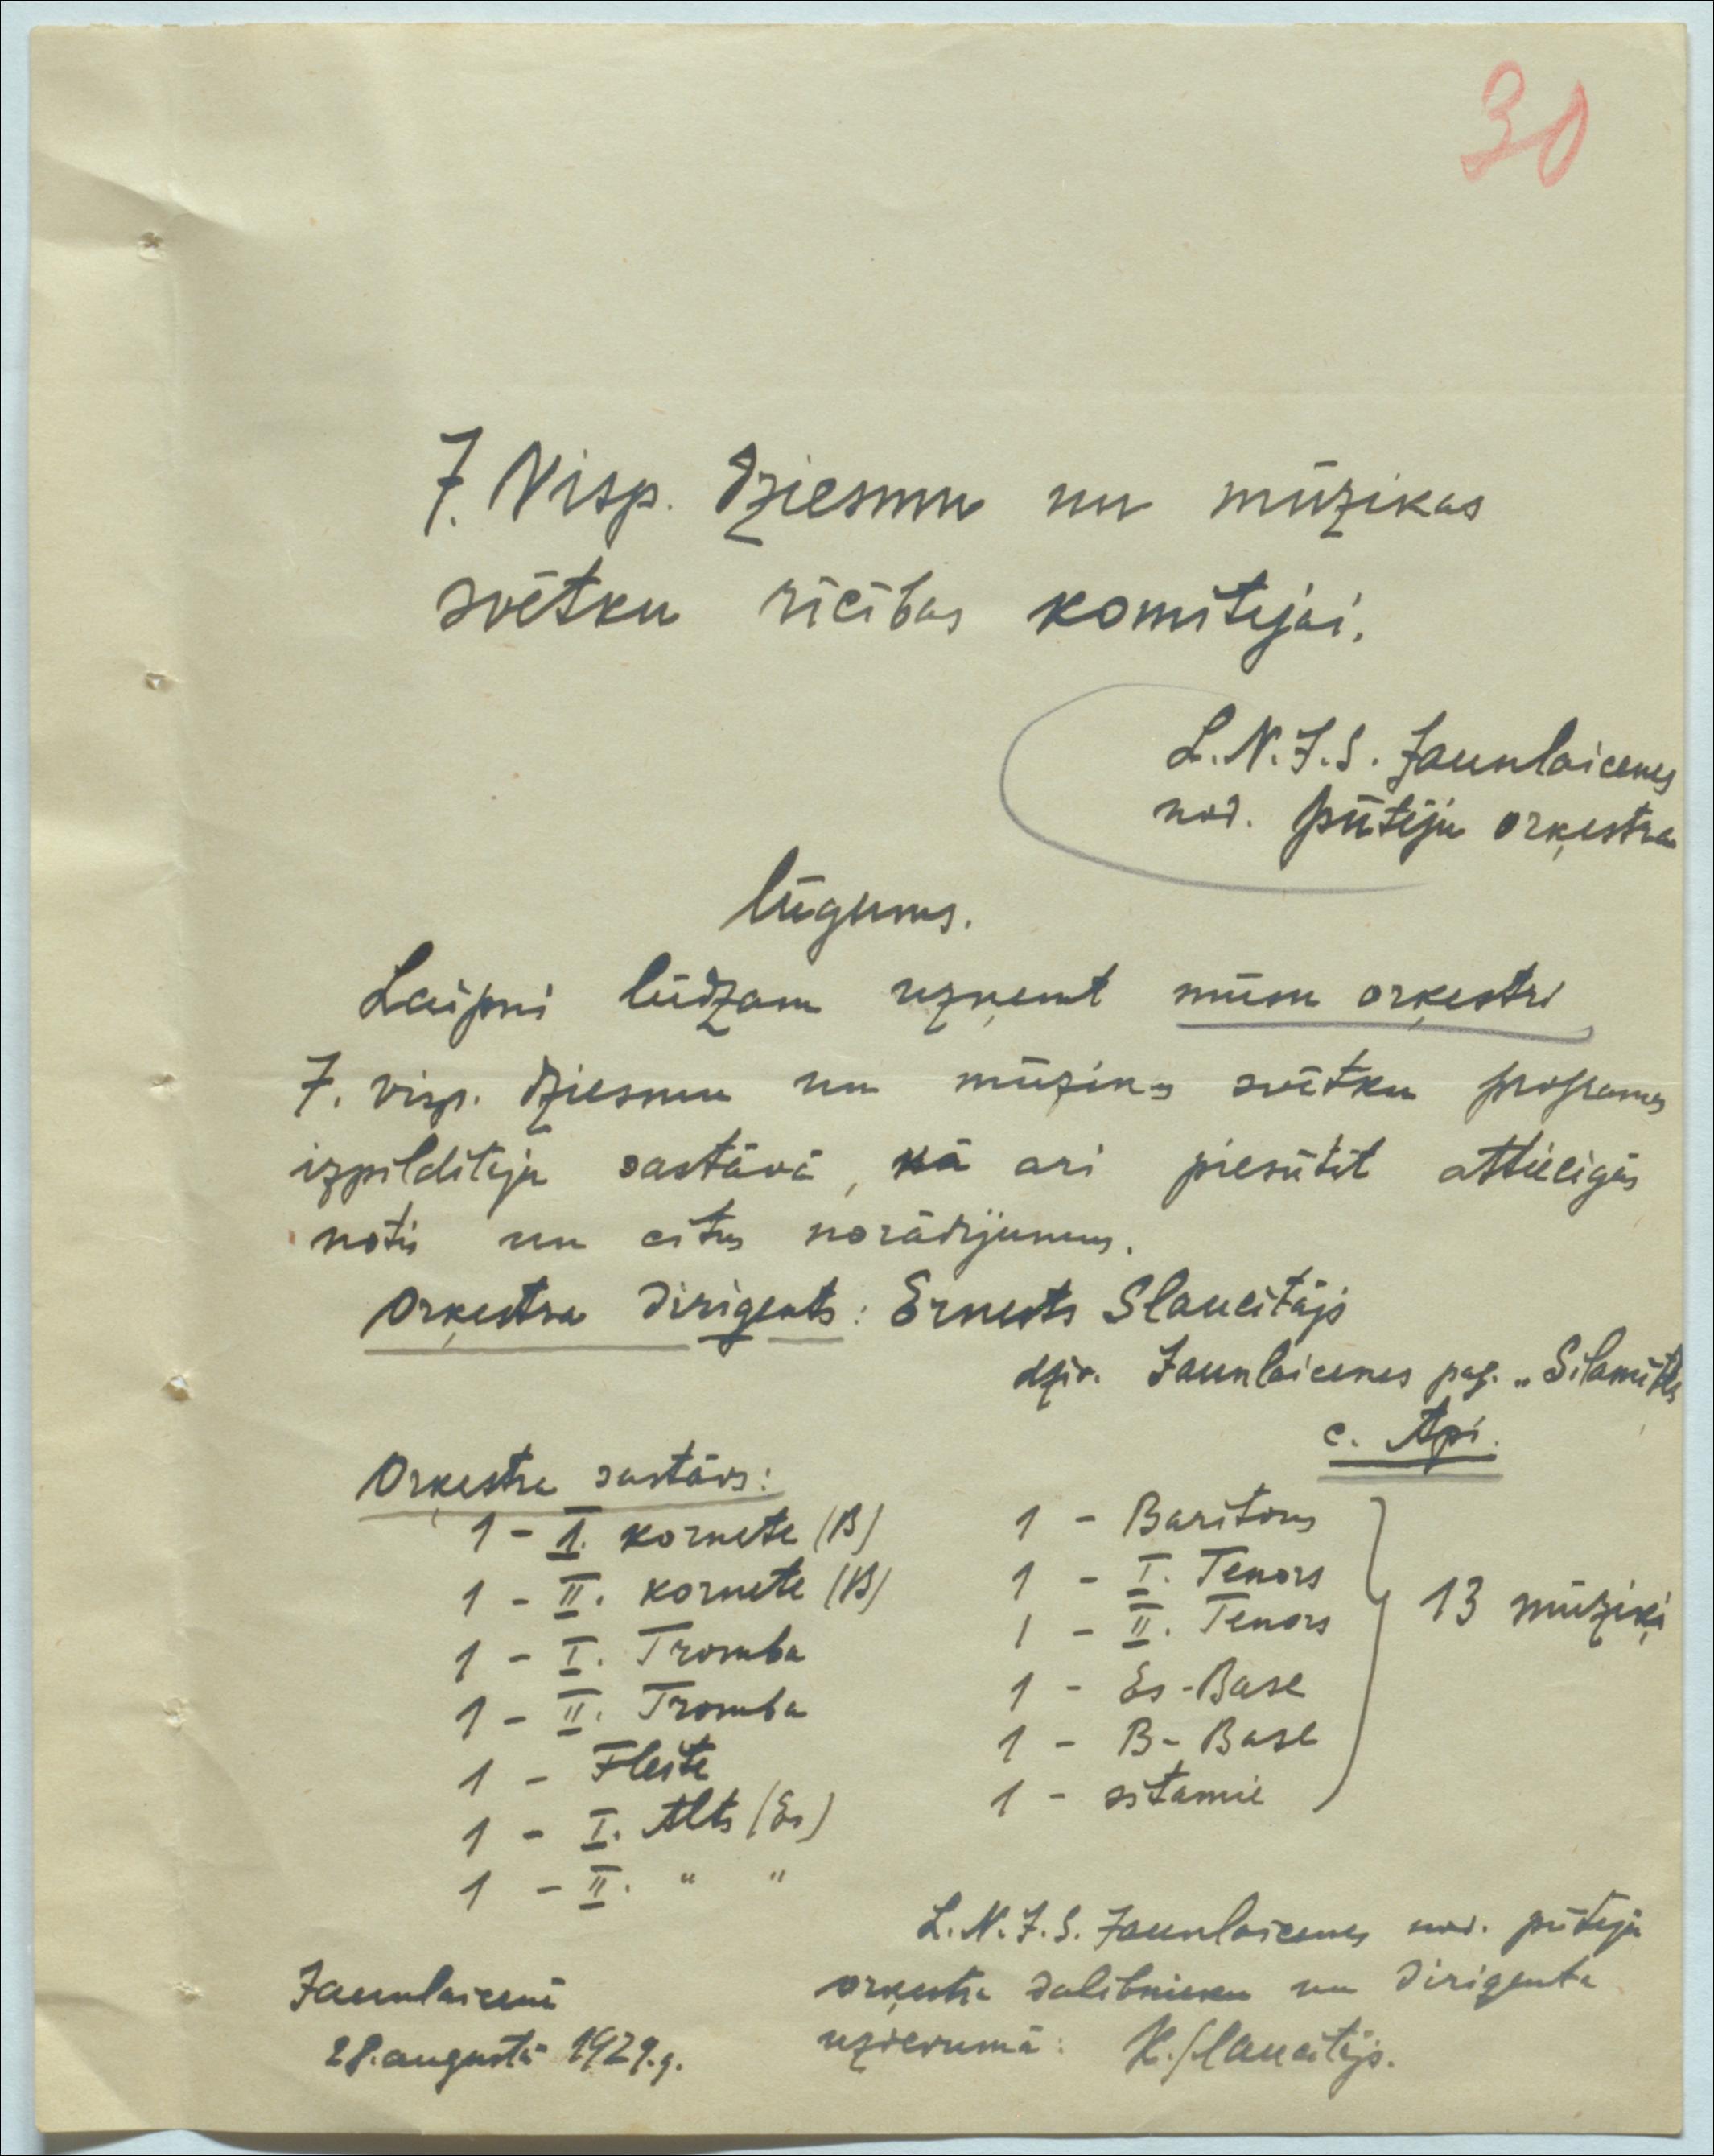 30
7. Visp. dziesmu un mūzikas
svētku rīcības komitejai.
L.N.J.S. Jaunlaicenes
nod. pūtēju orķestra
lūgums.
Laipni lūdzam uzņemt mūsu orķestri
7. visp. dziesmu un mūzikas svētku programas
izpildītāju sastāvā, kā arī piesūtīt attiecīgās
notis un citus norādījumus.
Orķestra dirigents: Ernests Slaucītājs
dzīv. Jaunlaicenes pag. „Silamūķos
c. Api.
Orķestra sastāvs:
1 - I. kornete (B)
1 - II. kornete (B)
1 - I. Tromba
1 - II. Tromba
1 - Fleite
1 - I. Alts (Es)
1 - II. " "
1 - Baritons
1 - I. Tenors
1 - II. Tenors
1 - Es-Base
1 - B-Base
1 - sitamie
13 mūziķi
L.N.J.S. Jaunlaicenes nod. pūtēju
orķestra dalībnieku un dirigenta
uzdevumā: K. Slaucītājs.
Jaunlaicenē
28. augustā 1929. g.